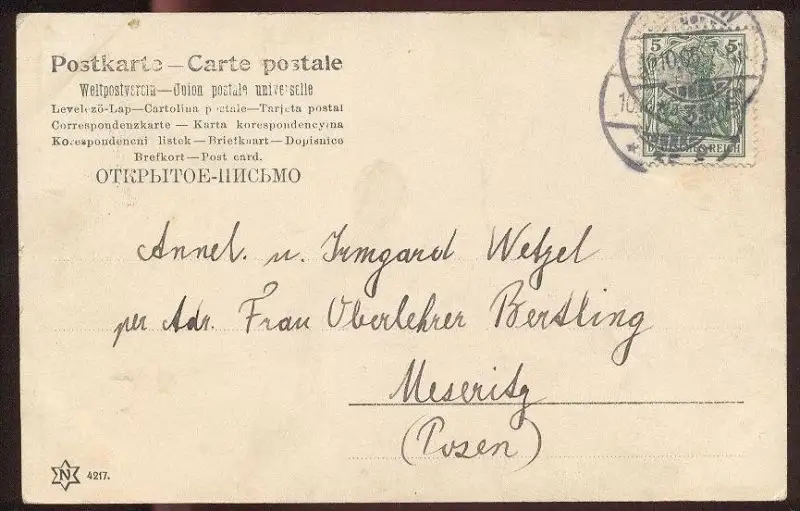 Postkarte — Carte postale
Weltpostverein — Union postale universelle
Levelező-Lap — Cartolina postale — Tarjeta postal
Correspondenzkarte — Karta korespondencyjna
Korespondencni listek — Briefkaart — Dopisnice
Brefkort — Post card.
ОТКРЫТОЕ-ПИСЬМО
5 5
DEUTSCHES REICH
10.10.05
Annel. u. Irmgard Wetzel
per Adr. Frau Oberlehrer Bertling
Meseritz
(Posen)
N 4217.